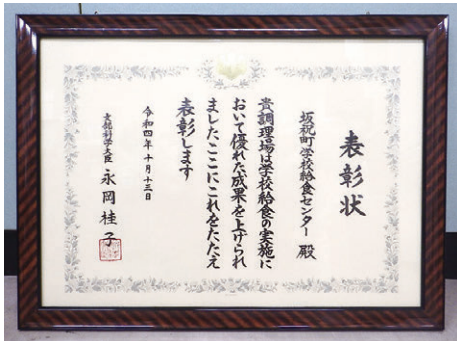 表彰状
坂祝町学校給食センター 殿
貴調理場は学校給食の実施に
おいて優れた成果を上げられ
ましたここにこれをたたえ
表彰します
令和四年十月十三日
文部科学大臣 永岡桂子